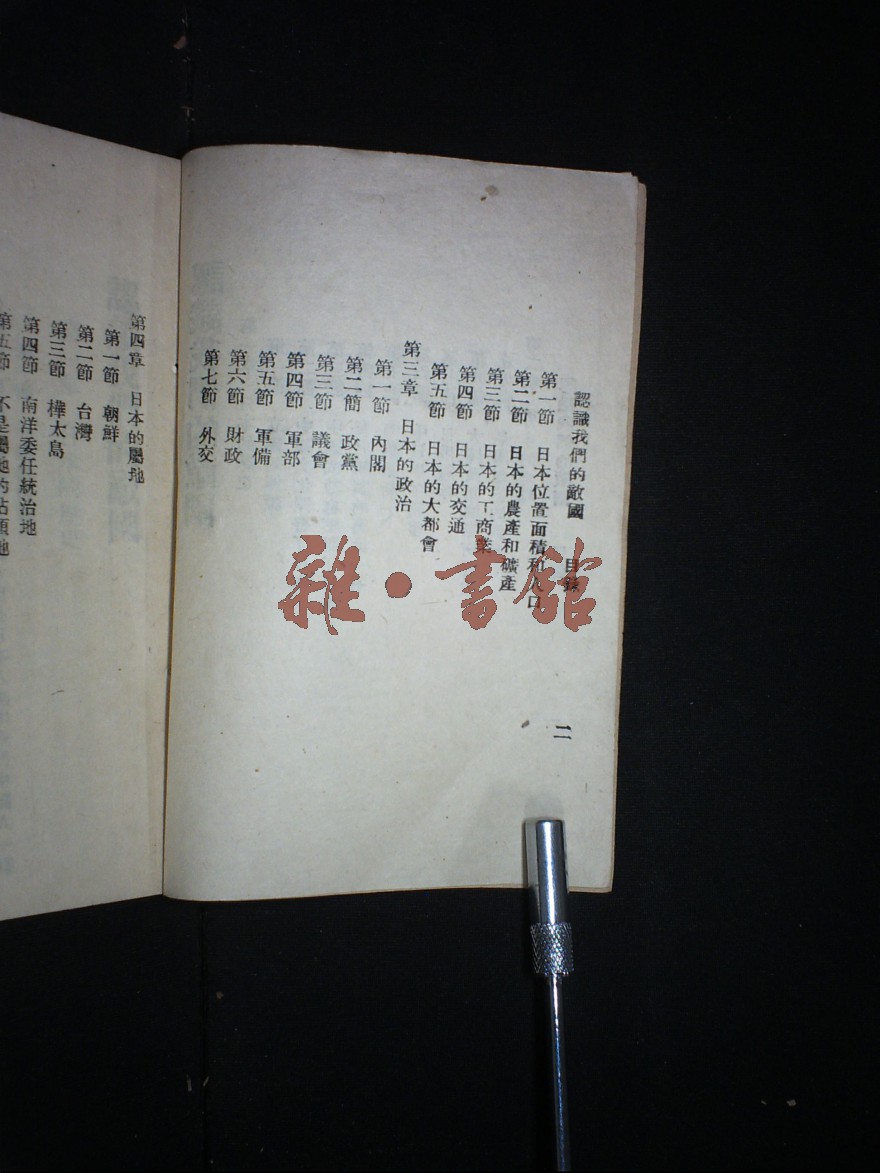 認識我們的敵國　目錄
二
第一節　日本位置面積和人口
第二節　日本的農產和礦產
第三節　日本的工商業
第四節　日本的交通
第五節　日本的大都會
第三章　日本的政治
第一節　內閣
第二簡　政黨
第三節　議會
第四節　軍部
第五節　軍備
第六節　財政
第七節　外交
第四章　日本的屬地
第一節　朝鮮
第二節　台灣
第三節　樺太島
第四節　南洋委任統治地
第五節　不是屬地的佔領地
雜·書館